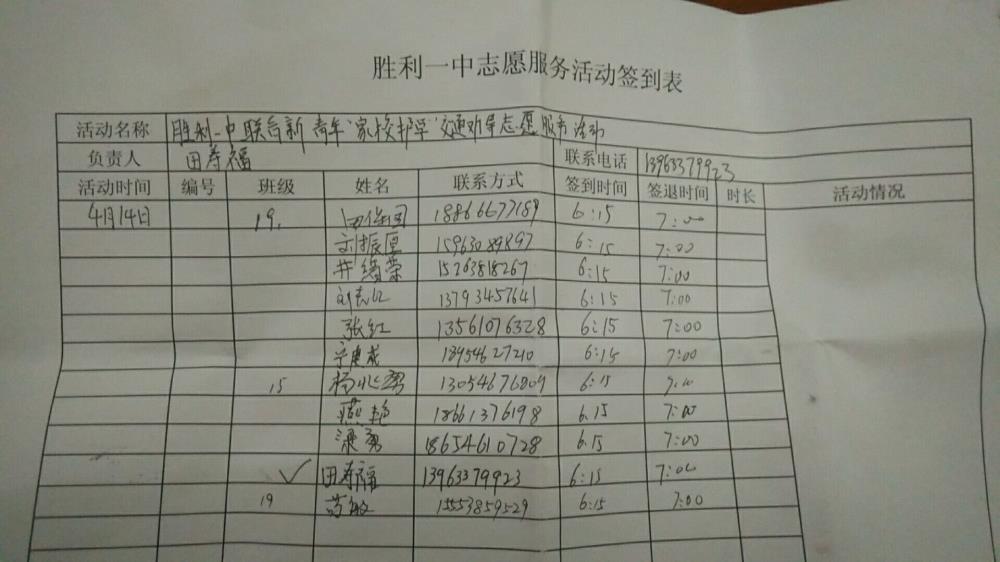 胜利一中志愿服务活动签到表
活动名称 胜利一中联合新青年"家校护学"交通劝导志愿服务活动
负责人 田寿福 联系电话 13963379923
活动时间 编号 班级 姓名 联系方式 签到时间 签退时间 时长 活动情况
4月14日 19. 田保国 18866677189 6:15 7:00
刘振厚 15963089897 6:15 7:00
井绪荣 15263818267 6:15 7:00
13793457641 6:15 7:00
张红 13561076328 6:15 7:00
宁建成 18954627210 6:15 7:00
15 杨 13054676809 6:15 7:00
燕艳 18661376198 6.15 7:00
梁勇 18654610728 6.15 7:00
田寿福 13963379923 6:15 7:00
19 苟敏 15553859529 6:15 7:00